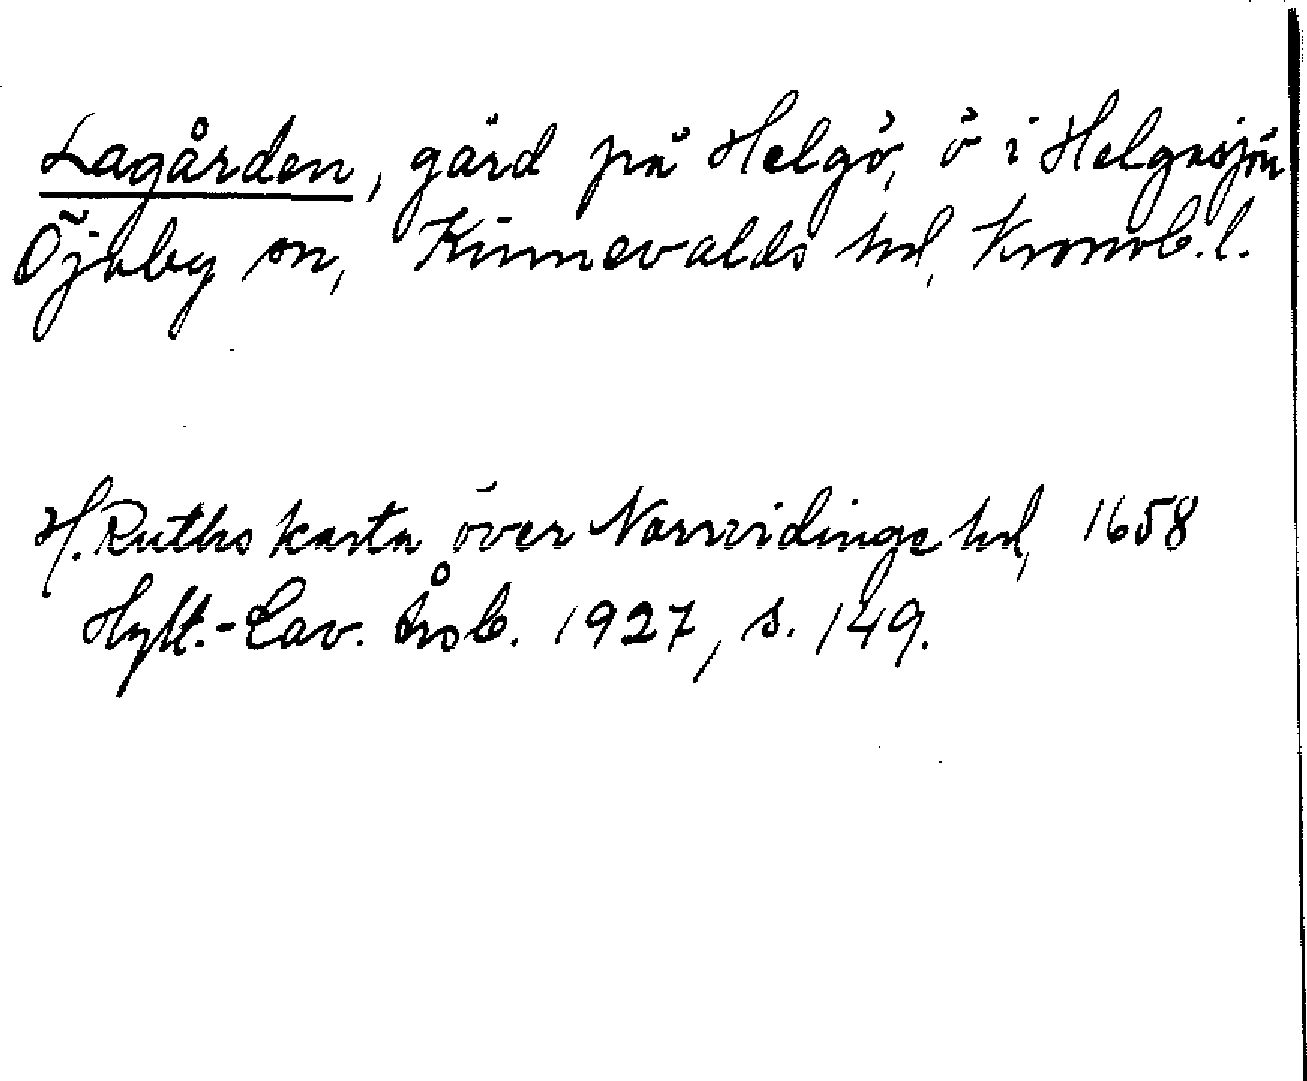 Lagården, gård på Helgö, ö i Helgasjön
Öjaby sn, Kinnevalds hd, Kronob. l.
H. Ruths karta över Norrvidinge hd, 1658
Hylt.-Cav. Årsb. 1927, s. 149.